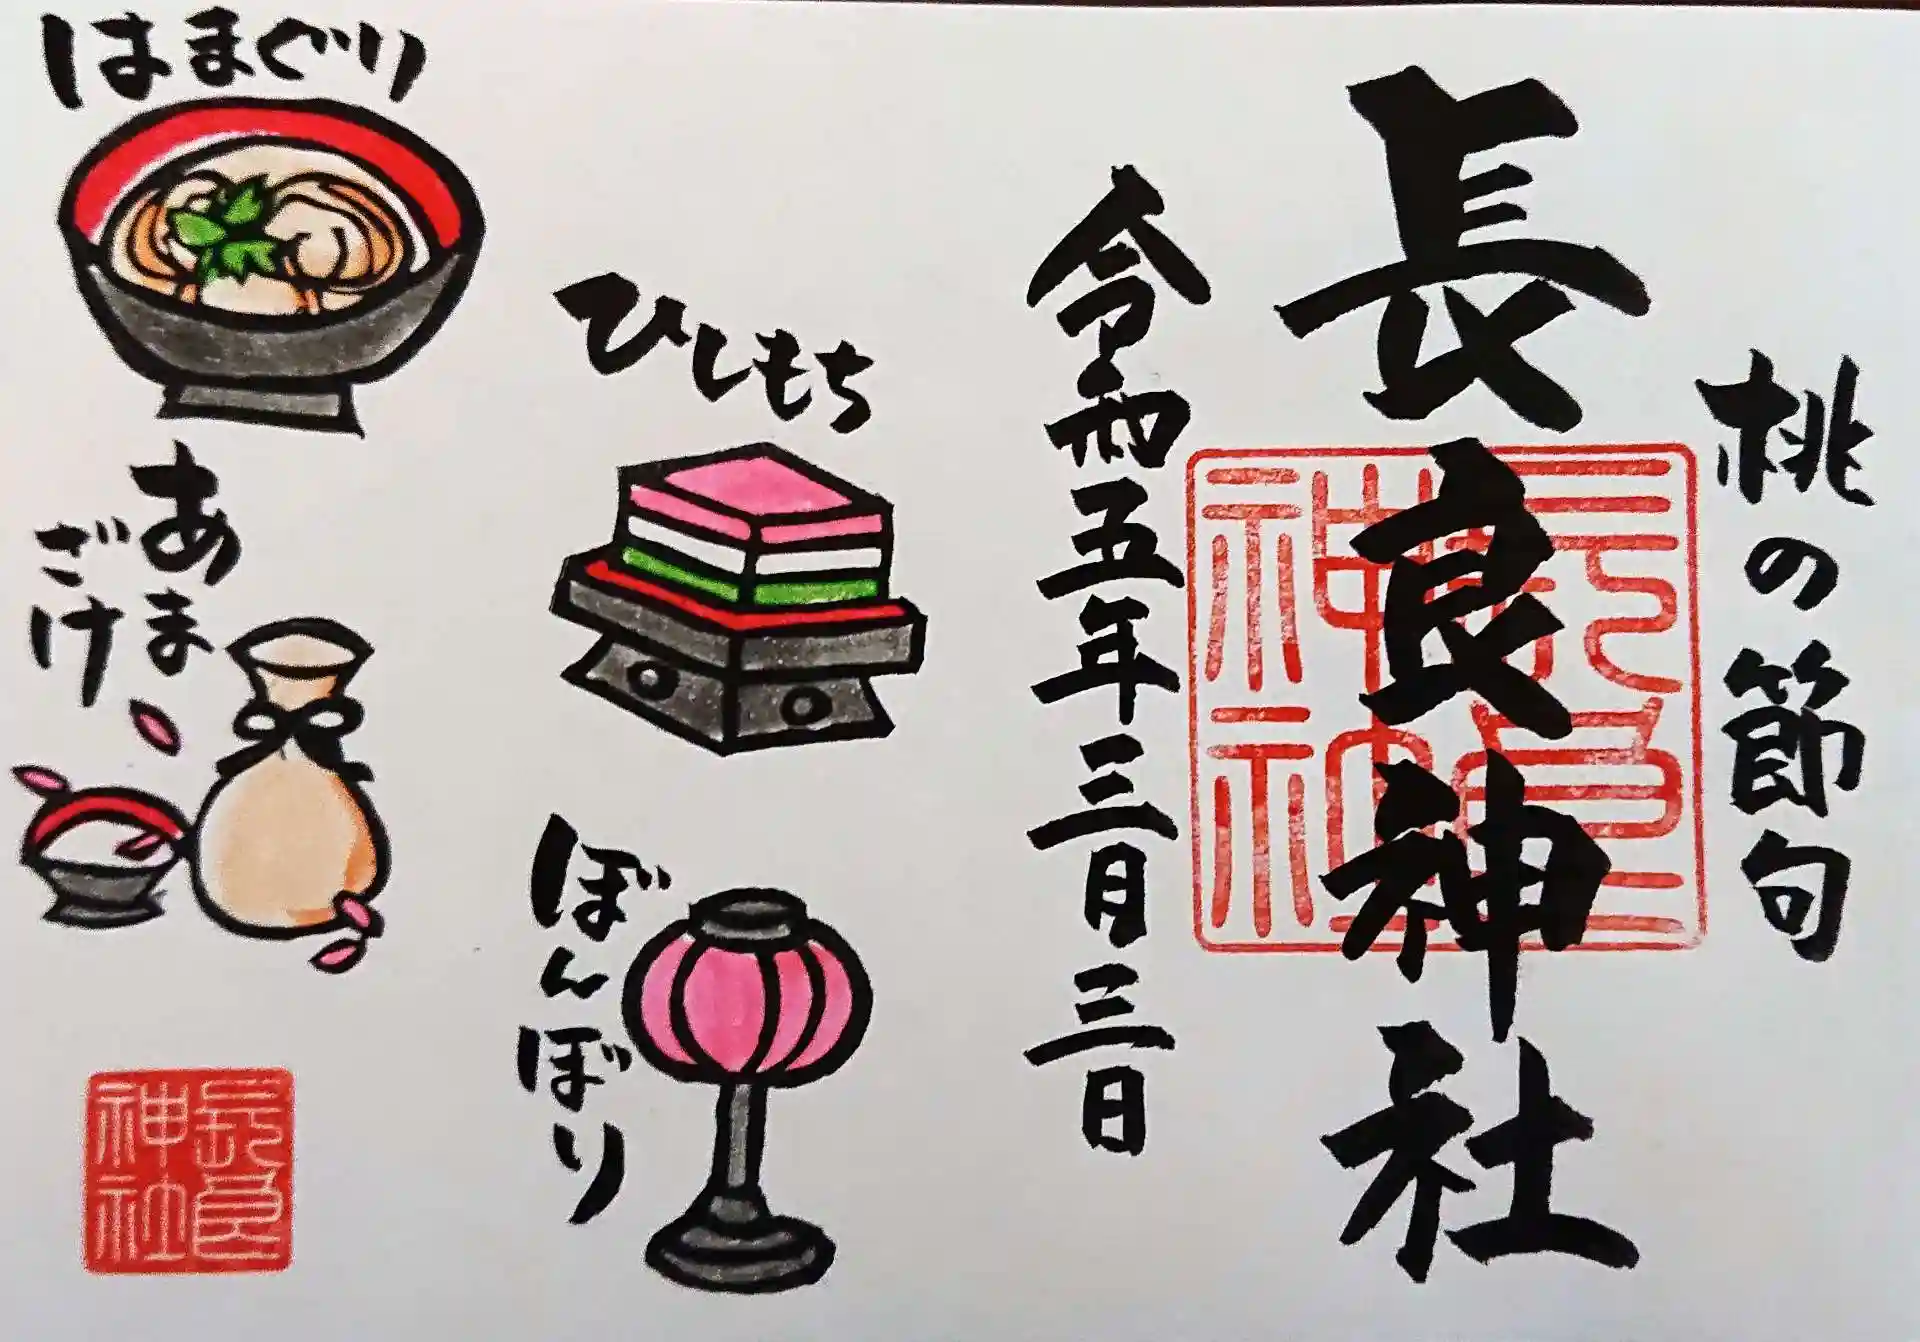 桃の節句
長良神社
長良神社
令和五年三月三日
ひしもち
ぼんぼり
はまぐり
あま
ざけ
長良神社